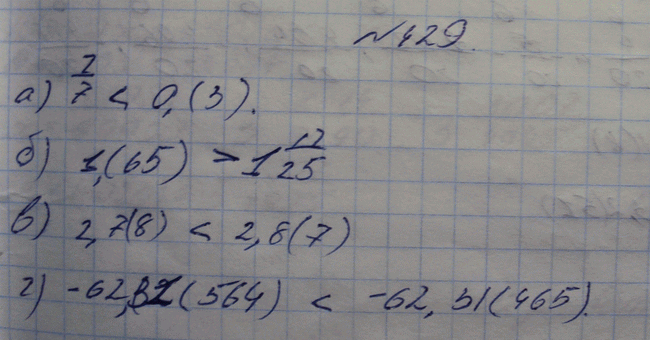 №429.
а) 2/7 < 0,(3).
б) 1,(65) > 1 17/25
в) 2,7(8) < 2,8(7)
г) -62,31(564) < -62,31(465).